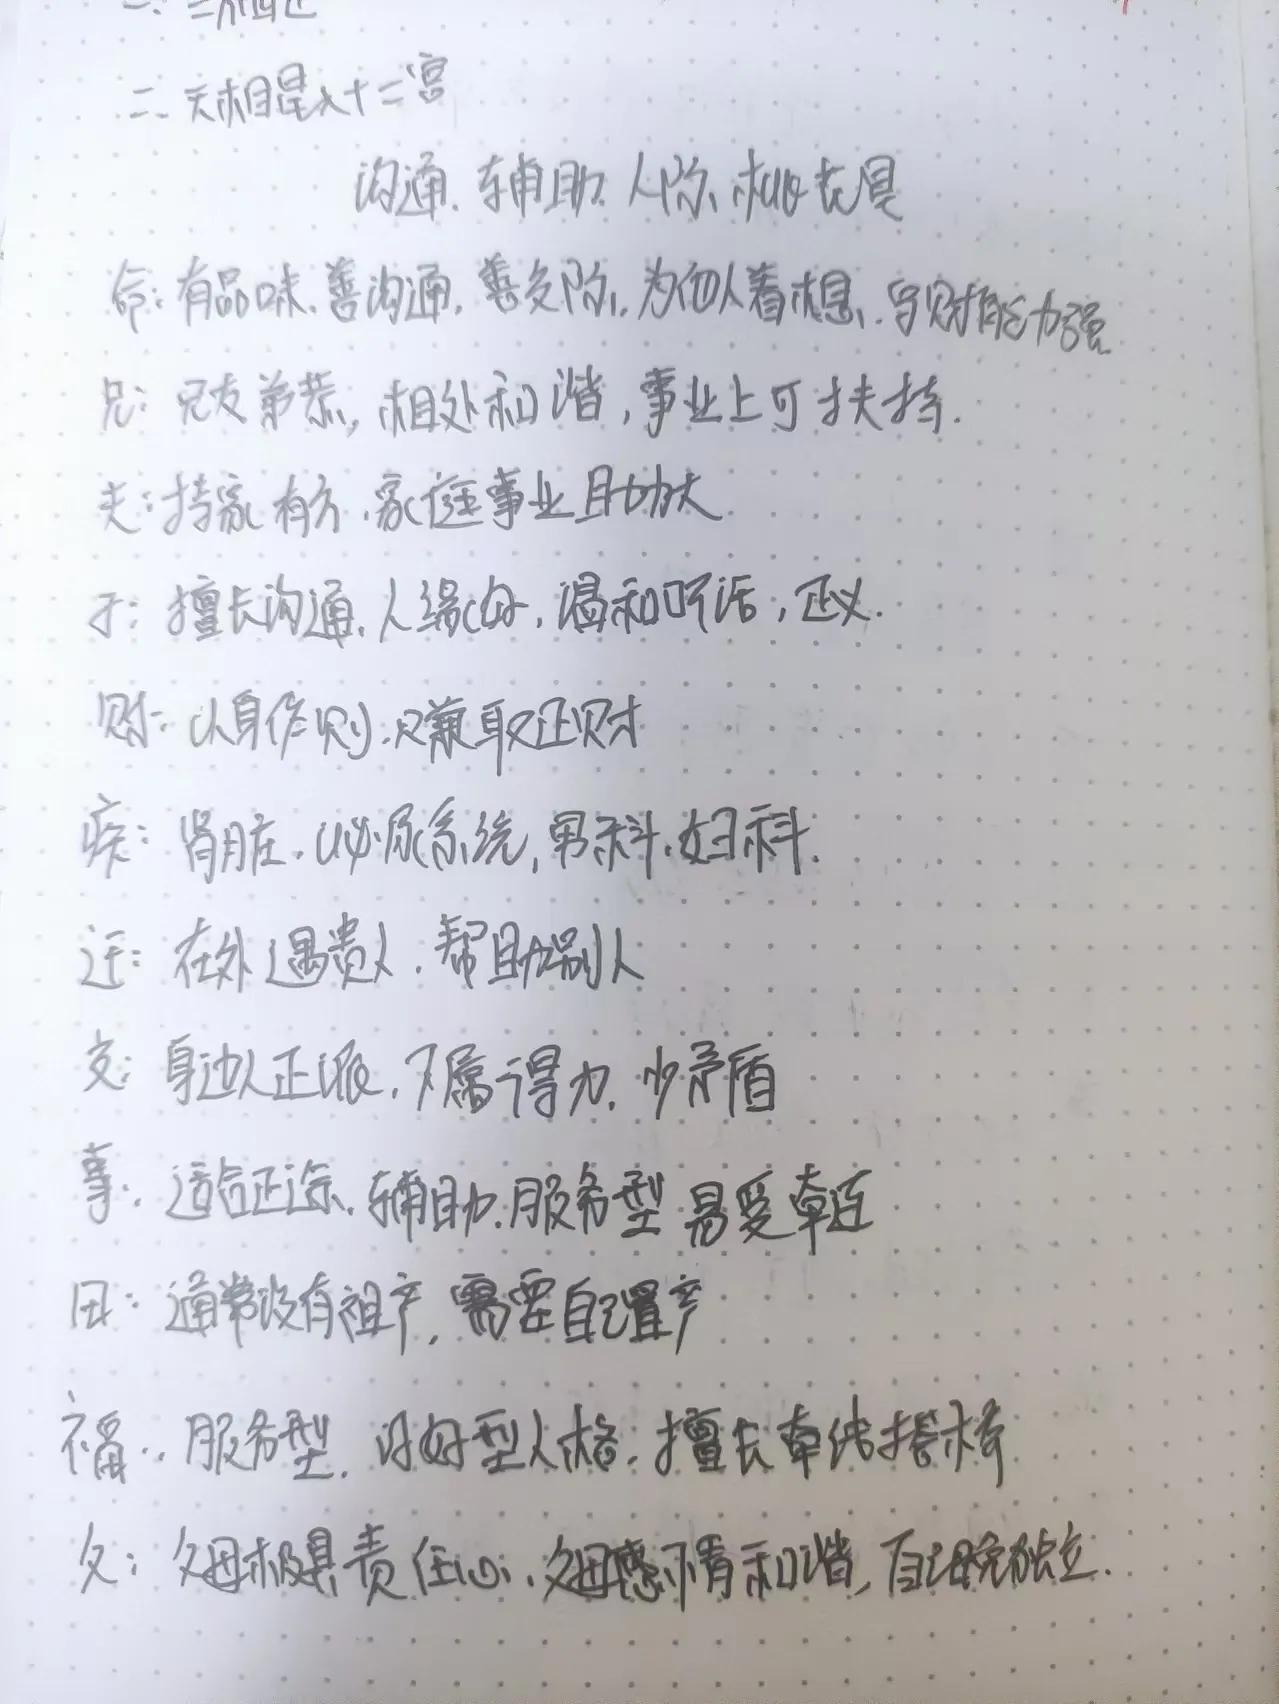 二、天相星入十二宫
沟通、辅助、人际、
命：有品味、善沟通、善交际、为他人着想、守财能力强
兄：兄友弟恭，相处和谐，事业上可扶持.
夫：持家有方、家庭事业助力大
子：擅长沟通、人缘好，温和听话，正义.
财：以身作则、只赚取正财
疾：肾脏、泌尿系统，男科、妇科.
迁：在外遇贵人，帮助别人
交：身边人正派，下属得力，少矛盾
事、适合正途、辅助、服务型 易受牵连
田：通常没有祖产，需要自己置产
福：服务型，讨好型人格，擅长牵线搭桥
父：父母极具责任心，父母感情和谐，自己晚独立.